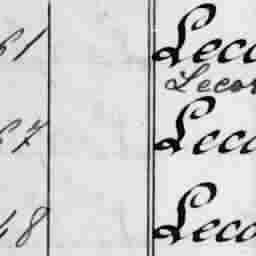 61 Leco
Lecor
67 Leco
48 Leco